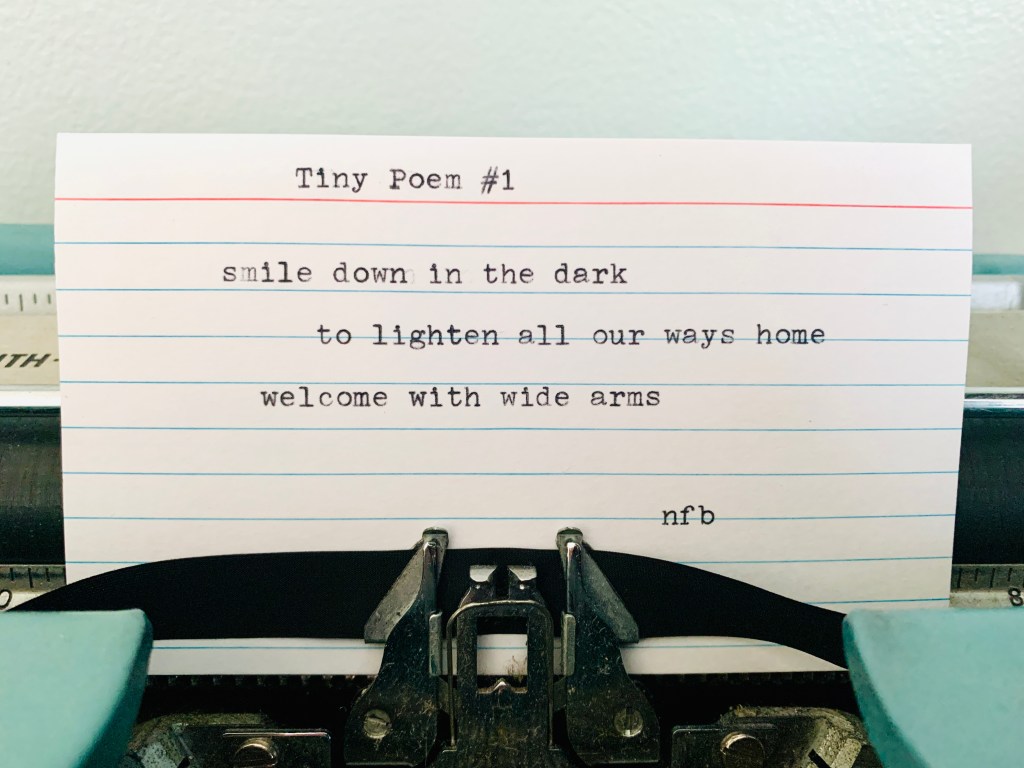 Tiny Poem #1
smile down in the dark
to lighten all our ways home
welcome with wide arms
nfb
ITH-
0
8